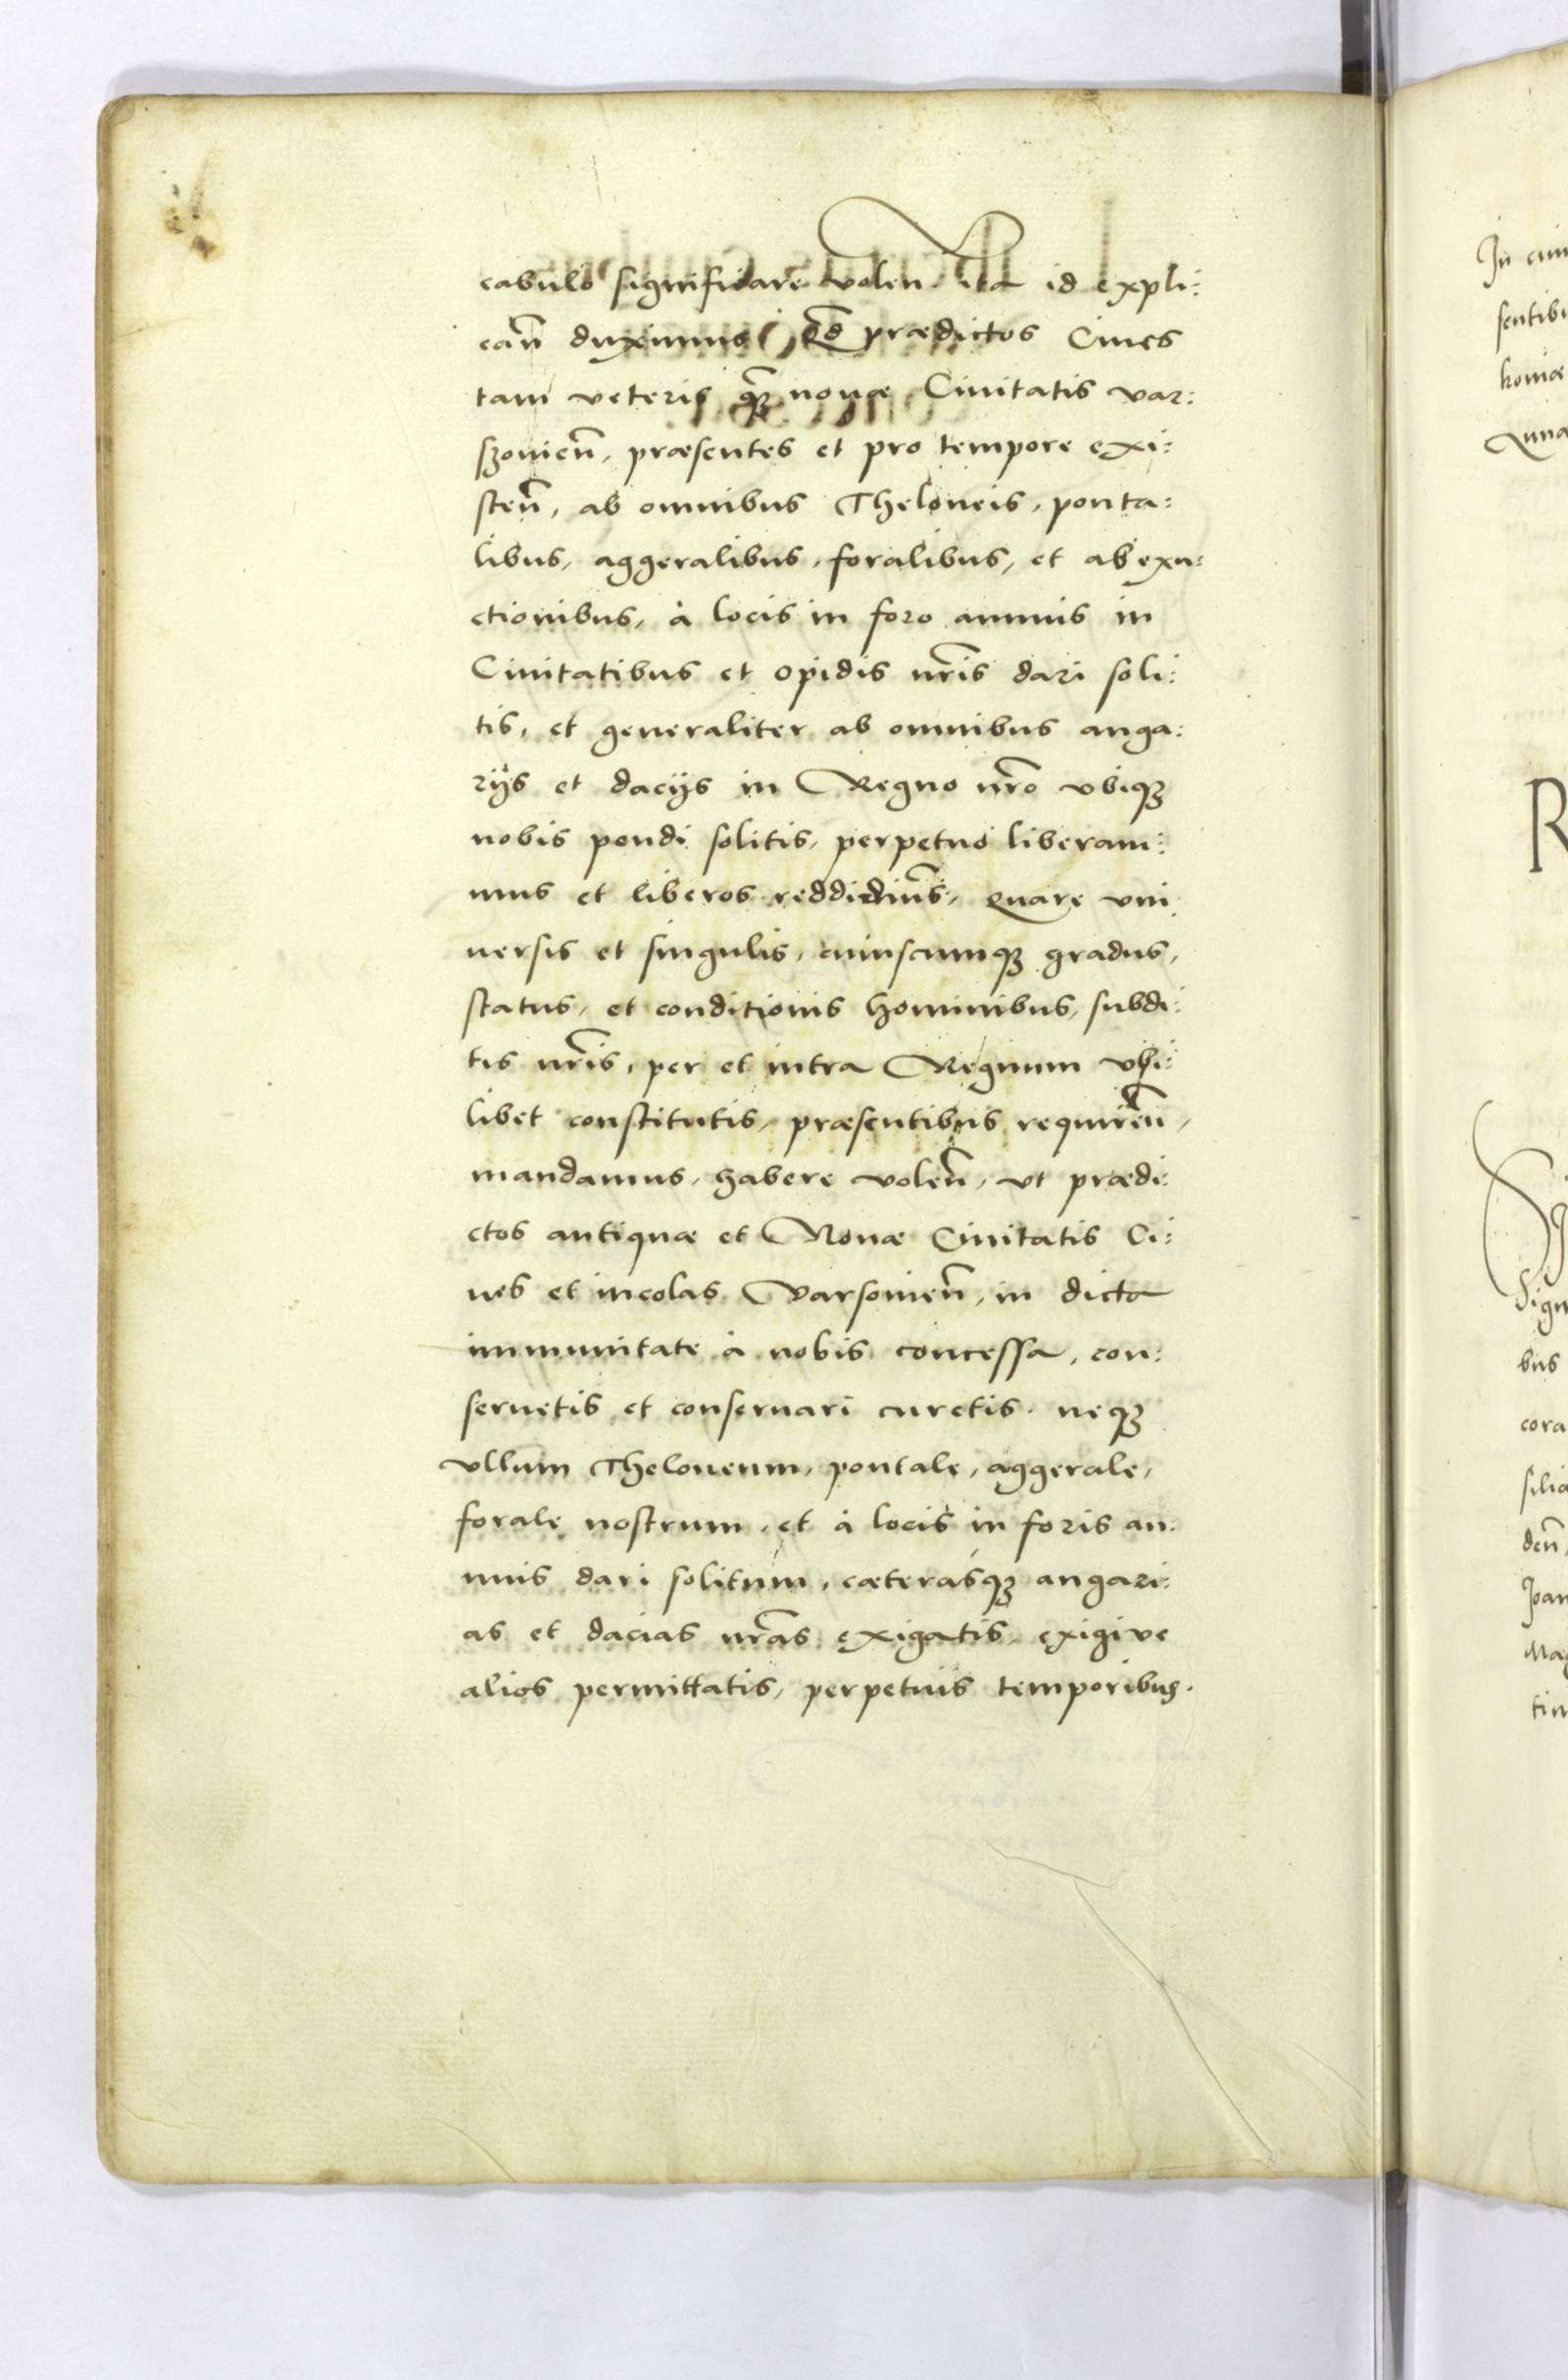 cabulo significare volen̄ ita id expli:
can̄ duximus, Qd̄ prædictos Ciues
tam veteris qm̄ nouæ Ciuitatis var:
szouien̄, præsentes et pro tempore exi:
sten̄, ab omnibus Theloneis, ponta:
libus, aggeralibus, foralibus, et ab exa:
ctionibus, à locis in foro annuis in
Ciuitatibus et opidis nr̄is dari soli:
tis, et generaliter ab omnibus anga:
rijs et dacijs in Regno nr̄o vbiqꝫ
nobis pendi solitis, perpetuo liberaui:
mus et liberos reddidim̄s, Quare vni
uersis et singulis, cuiuscumqꝫ gradus,
status, et conditionis hominibus, subdi:
tis nr̄is, per et intra Regnum vbi:
libet constitutis, præsentibus requiren̄,
mandamus, habere volen̄, vt prædi:
ctos antiquæ et Nouæ Ciuitatis Ci:
ues et incolas Varsouien̄, in dicta
immunitate à nobis concessa, con:
seruetis et conseruari curetis. neqꝫ
vllum Theloneum, pontale, aggerale,
forale nostrum, et à locis in foris an:
nuis dari solitum, cæterasqꝫ angari:
as et dacias nr̄as exigatis, exigi ve
alios permittatis, perpetuis temporibus.
In cui
sentibu
R
Sign
bus
cora
silia
den̄
Joan
Mag
tin